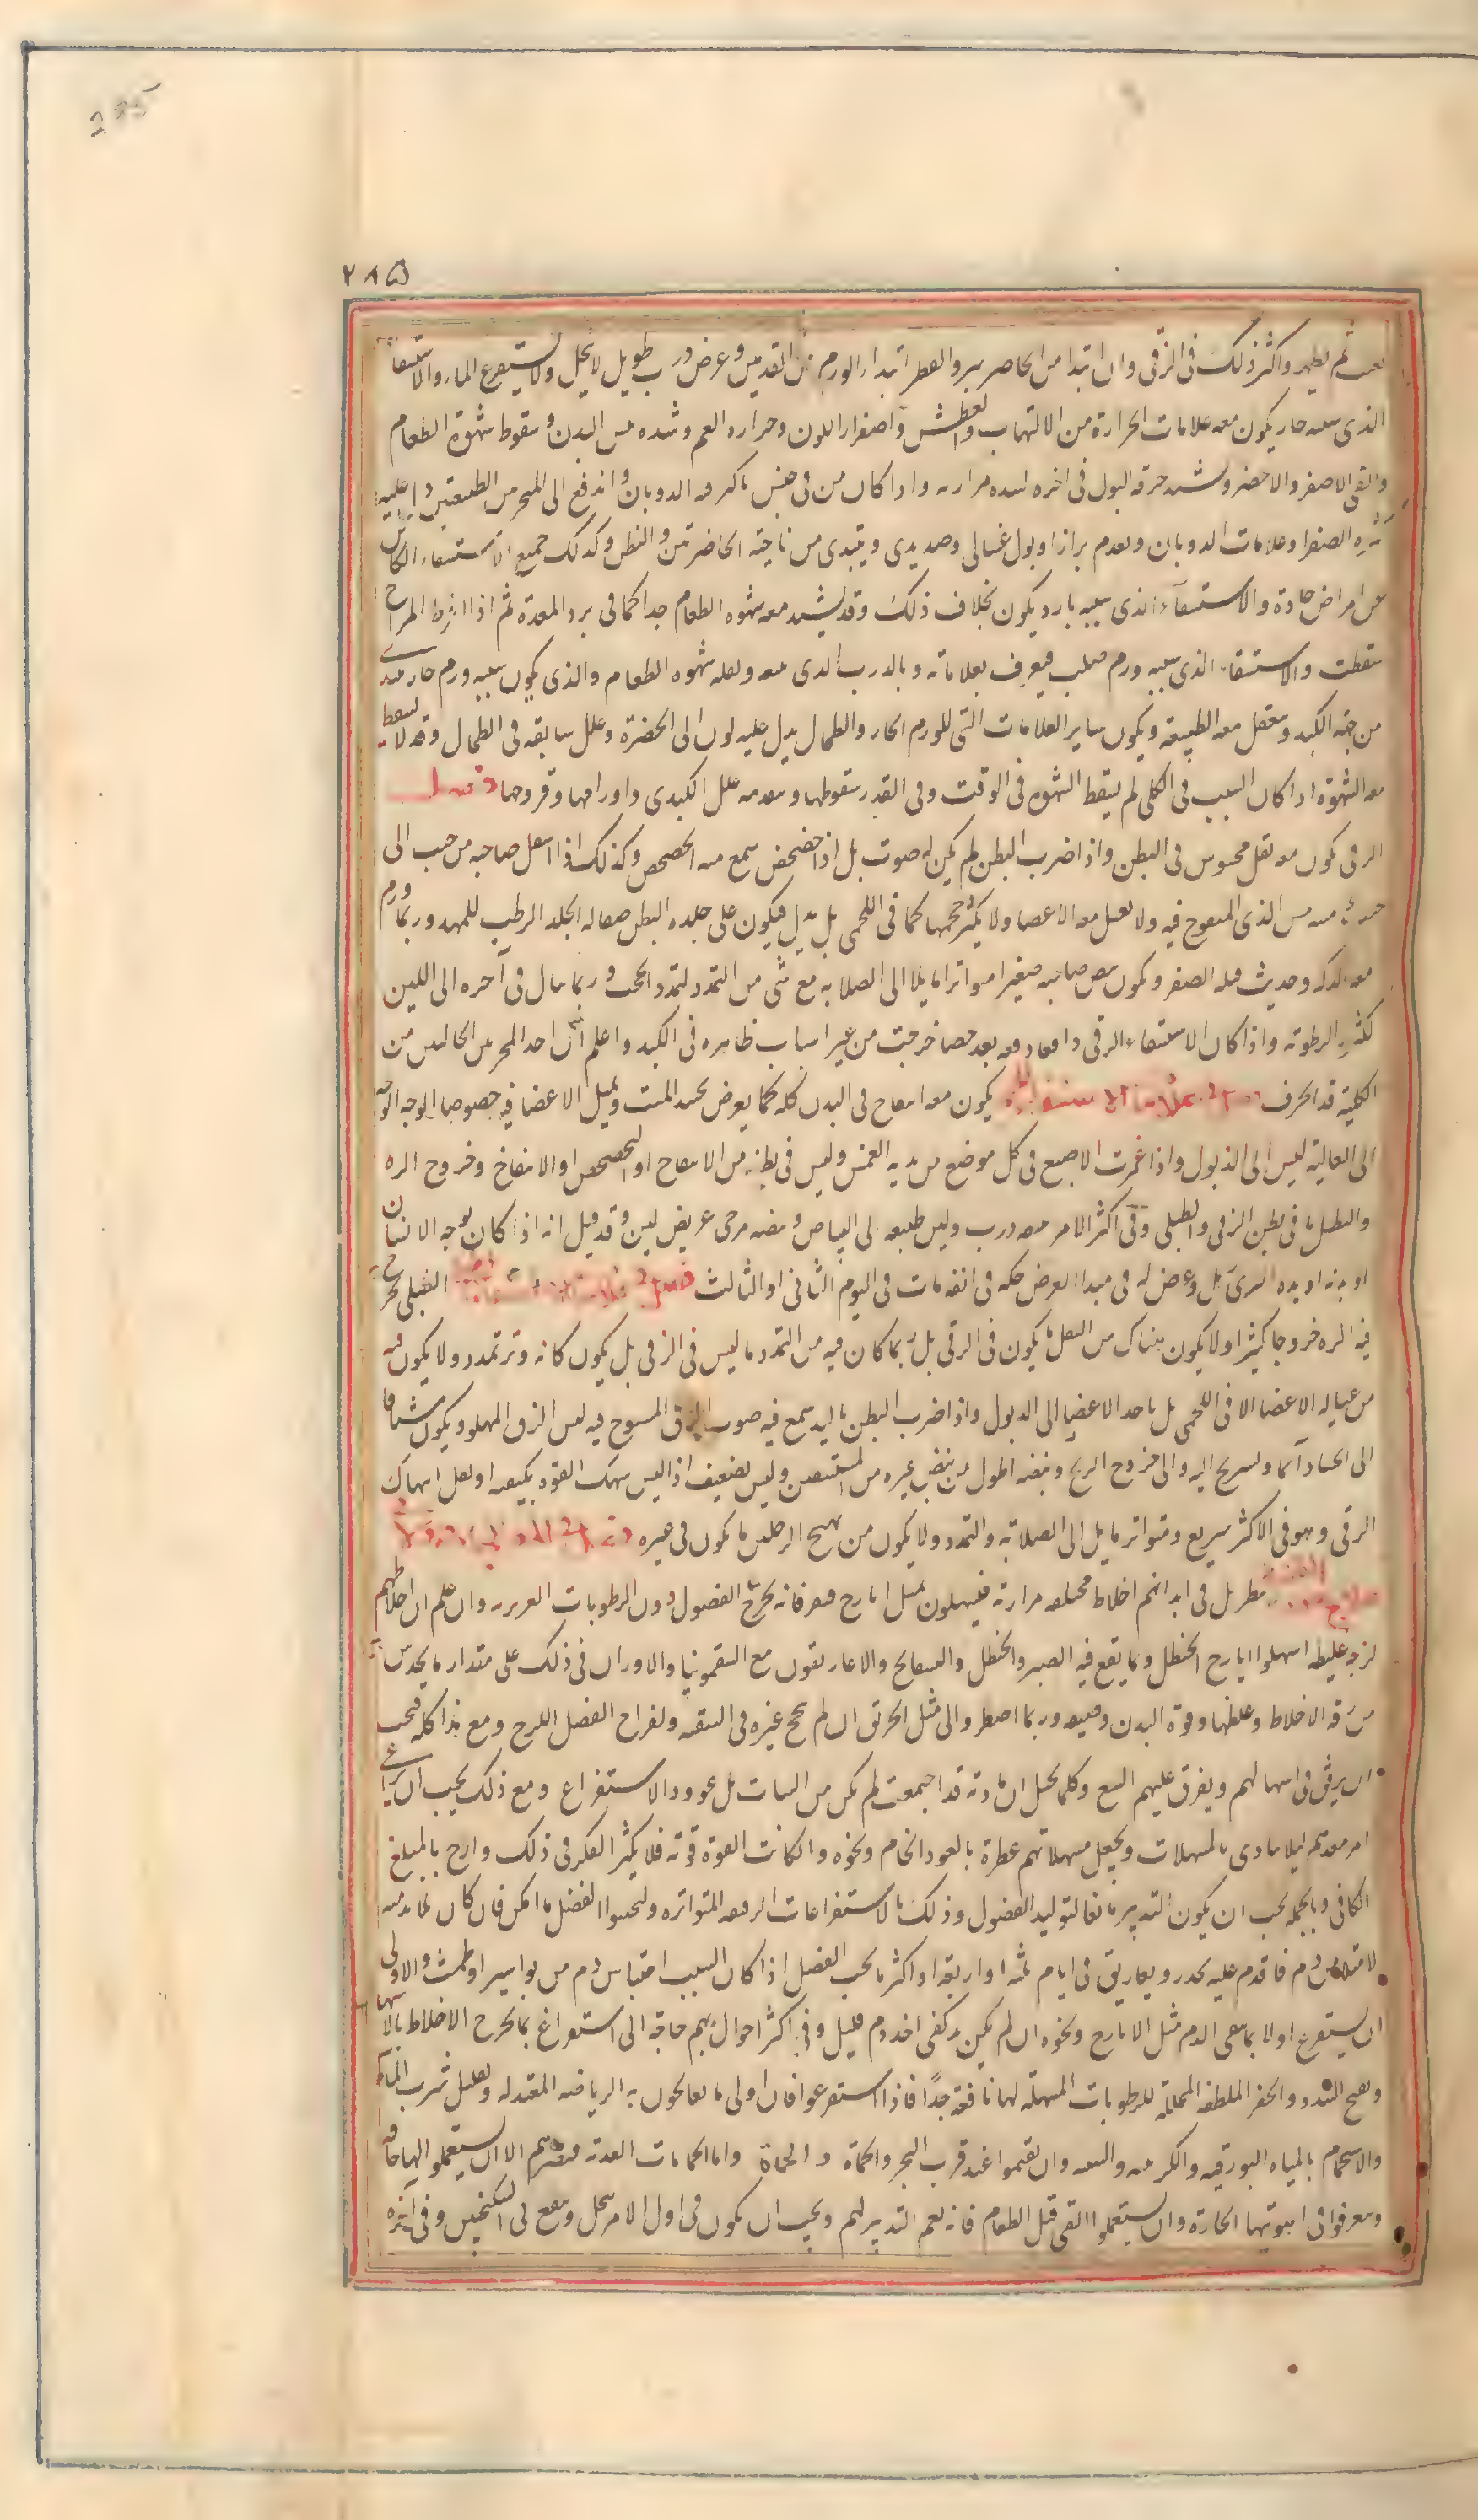 285
٢٨٥
لم يظهر واكثر ذلك فى الزقى وان ابتدا من الخاصرتين والقطن ابتدا الورم من القدمين وعرض ذرب طويل لا يحل ولا يستفرع الماء والاستسقا
الذى سببه حار يكون معه علامات الحرارة من الالتهاب والعطش واصفرار اللون ومراره الفم وشده يبس البدن وسقوط شهوة الطعام
والقى الاصفر والاخضر و حرقه البول فى اخره لشده مرارته واذا كان من جنس ما كثر فيه الذوبان واندفع الى المجرى الطبيعتين دل عليه
كثره الصفرا وعلامات الذوبان وتقدم براز او بول غسالى وصديدى ويبتدى من ناحية الخاصرتين والقطن وكذلك جميع الاستسقاء الكائن
عن امراض حادة والاستسقآء الذى سببه بارد يكون بخلاف ذلك وقد يشتد معه شهوه الطعام جدا كما فى برد المعدة ثم اذا افرط المزاج
سقطت والاستسقاء الذى سببه ورم صلب فيعرف بعلاماته وبالذرب الذى معه ولقله شهوه الطعام والذى يكون سببه ورم حار
من جهة الكبد ويعقل معه الطبيعة ويكون ساير العلامات التى للورم الحار والطحال يدل عليه لون الى الخضرة وعلل سابقه فى الطحال وقد لا يسقط
معه الشهوة اذا كان السبب فى الكلى لم يسقط الشهوه فى الوقت وفى القدر سقوطها وتقدمه علل الكبدى واورامها وقروحها فصل
الزقى يكون معه ثقل محسوس فى البطن واذا ضرب البطن لم يكن له صوت بل اذا خضخض سمع منه الخضخض وكذلك اذا انتقل صاحبه من جنب الى
جنب الذى المنفوخ فيه ولا يعبل معه الاعضا ولا يكثر حجمها كما فى اللحمى بل يذبل فيكون على جلده البطن صقاله الجلد الرطب للمهدد وربما ورم
معه الذكر وحديث فيه الصفر ويكون نبض صاحبه صغيرا متواترا مايلا الى الصلابه مع شى من التمدد لتمدد الحجب وربما مال فى آخره الى اللين
لكثره الرطوبة واذا كان الاستسقاء الزقى واقعا دفعه بعد حصاه خرجت من غير اسباب ظاهره فى الكبد واعلم ان احد المجرين الخالبين من
الكلية قد انخرق فصل فى علامات الاستسقاء يكون معه انتفاخ فى البدن كله كما يعرض لجسد الميت وتميل الاعضا فيه خصوصا الوجه
الى العالية ليس الى الذبول واذا غمزت الاصبع فى كل موضع من بدنه انغمس وليس فى بطنه من الانتفاخ او الخضخض او الانتفاخ وخروج السره
والبطن ما فى بطن الزقى والطبلى وفى اكثر الامر معه ذرب ولين طبيعه الى البياض ونبضه موجى عريض لين وقد قيل انه اذا كان بوجه الانسان
او بدنه او يده اليسرى وعرض له فى مبدا العرض حكه فى انفه مات فى اليوم الثانى او الثالث فصل فى علامات الاستسقاء الطبلى يخرج
فيه السره خروجا كثيرا ولا يكون هناك من الثقل ما يكون فى الزقى بل ربما كان فيه من التمدد ما ليس فى الزقى بل يكون كانه وتر تمدد ولا يكون فيه
من عباله الاعضا الا فى اللحمى بل ياخذ الاعضا الى الذبول واذا ضرب البطن باليد سمع فيه صوت الزق المنفوخ فيه ليس الزق المملو ويكون مشتاقا
الى الجشا دآئما ويستريح اليه والى خروج الريح ونبضه اطول من نبض غيره من المستسقين وليس بضعيف اذا ليس ينهك القوه بكيفيه او ثقل انهاك
الزقى وهو فى الاكثر سريع ومتواتر مايل الى الصلابة والتمدد ولا يكون من تهيج الرجلين ما يكون فى غيره
ينظر هل فى ابدانهم اخلاط محتلفه مرارية فيسهلون بمثل ايارج فيقرا فانه يخرج الفضول دون الرطوبات الغريزيه وان علم ان اخلاطهم
لزجه غليظه اسهلوا ايارج الحنظل وما يقع فيه الصبر والحنظل والبسفايج والاغاريقون مع السقمونيا والاوزان فى ذلك على مقدار ما يحدس
من رقه الاخلاط وغلظها وقوة البدن وضعفه وربما اضطر والى مثل الخربق ان لم ينجح غيره فى التنقيه واخراج الفضل اللزج ومع هذا كله فيجب
ان يرفق فى اسهالهم ويفرق عليهم السقى وكلما يخيل ان ماده قد اجتمعت لم يمكن من الثبات بل عوود الاستفراغ ومع ذلك يجب ان يراعى
امر معدتهم ليلا يتاذى بالمسهلات ويجعل مسهلاتهم عطرة بالعود الخام ونحوه وان كانت القوة قوية فلا يكثر الفكر فى ذلك وارح بالمبلغ
الكافى وبالجمله يجب ان يكون التدبير مانعا لتوليد الفضول وذلك بالاستفراغات الرقيقه المتواتره وليجنبوا الفصد ما امكن فان كان لا بد منه
لامتلاء من دم فاقدم عليه بحذر وتفاريق فى ايام ثلثه او اربعة او اكثر ما يجب الفصد اذا كان السبب احتباس دم من بواسير او طمث والاولى
ان يستفرغ اولا بما ينقى الدم مثل الايارج ونحوه ان لم يكن بد كفى اخذ دم قليل وفى اكثر احوالهم بهم حاجه الى استفراغ بما يخرج الاخلاط بالاسهال
وبفتح السدد والحقن الملطفه المحللة للرطوبات المسهلة لها نافعة جدًا فاذا استفرغوا فان اولى ما يعالجون به الرياضه المعتدله وتقليل شرب الماء
والاستحمام بالمياه البورقيه والكبريتيه والشبيه وان يقيموا عند قرب البحر والحماة واما الحمامات العذبة فيضرهم الا ان يستعملوا لها جافه
ويعرقوا فى اهويتها الحارة وان يستعملوا القى قبل الطعام فانه نعم التدبير لهم ويجب ان يكون فى اول الامر بفجل ينقع فى السكنجبين وفى آخره